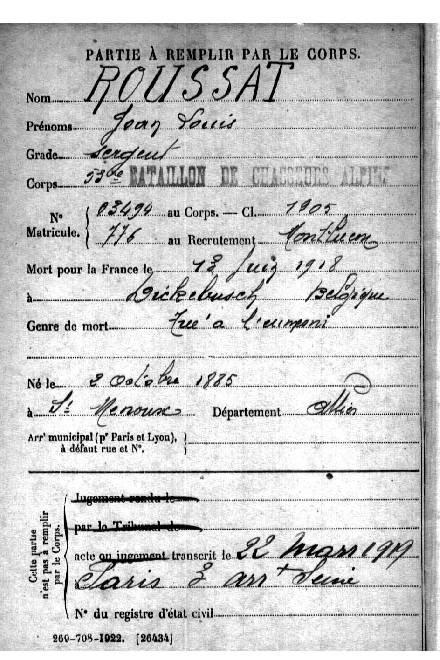 PARTIE À REMPLIR PAR LE CORPS.
Nom ROUSSAT
Prénoms Jean Louis
Grade sergent
Corps 53me BATAILLON DE CHASSEURS ALPINS
N° Matricule. { 03494 au Corps. — Cl. 1905
776 au Recrutement Montluçon
Mort pour la France le 13 Juin 1918
à Dickebusch Belgique
Genre de mort Tué à l'ennemi
Né le 2 octobre 1885
à St Menoux Département Allier
Arrt municipal (pr Paris et Lyon), à défaut rue et N°. {
Cette partie n'est pas à remplir par le Corps. {
Jugement rendu le
par le Tribunal de
acte ou jugement transcrit le 22 Mars 1919
Paris 3 arrt Seine
N° du registre d'état civil
260-708-1922. [26434]